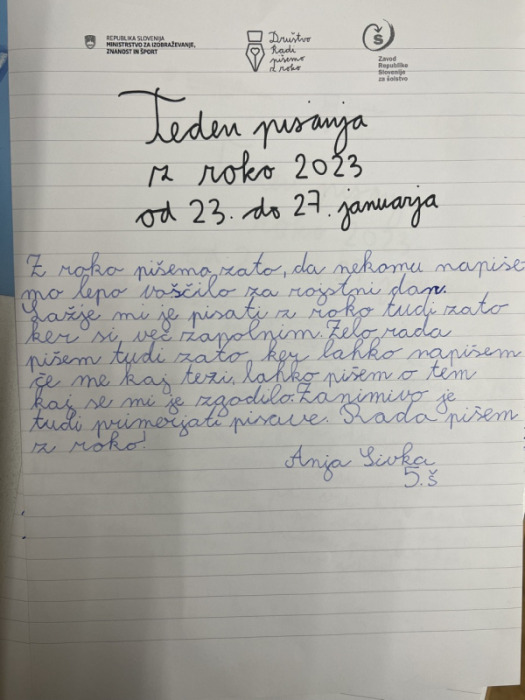 REPUBLIKA SLOVENIJA
MINISTRSTVO ZA IZOBRAŽEVANJE,
ZNANOST IN ŠPORT
Društvo
Radi
pišemo
z roko
Š
Zavod
Republike
Slovenije
za šolstvo
Teden pisanja
z roko 2023
od 23. do 27. januarja
Z roko pišemo zato, da nekomu napiše
mo lepo voščilo za rojstni dan.
Lažje mi je pisati z roko tudi zato
ker si več zapolnim. Zelo rada
pišem tudi zato, ker lahko napišem
če me kaj teži, lahko pišem o tem
kaj se mi je zgodilo. Zanimivo je
tudi primerjati pisave. Rada pišem
z roko!
Anja Sivka
5.š